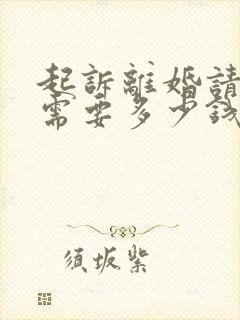 起訴離婚請
需要多少錢
須坂紫